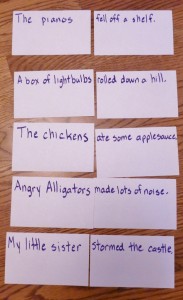 The pianos fell off a shelf.
A box of lightbulbs rolled down a hill.
The chickens ate some applesauce
Angry Alligators made lots of noise.
My little sister stormed the castle.